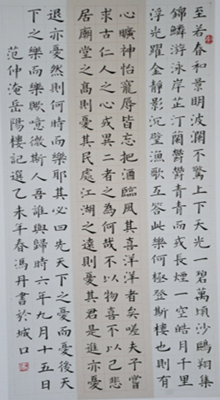 至若春和景明波瀾不驚上下天光一碧萬頃沙鷗翔集
錦鱗游泳岸芷汀蘭鬱鬱青青而或長煙一空皓月千里
浮光躍金靜影沉璧漁歌互答此樂何極登斯樓也則有
心曠神怡寵辱皆忘把酒臨風其喜洋洋者矣嗟夫予嘗
求古仁人之心或異二者之為何哉不以物喜不以己悲
居廟堂之高則憂其民處江湖之遠則憂其君是進亦憂
退亦憂然則何時而樂耶其必曰先天下之憂而憂後天
下之樂而樂歟噫微斯人吾誰與歸時六年九月十五日
范仲淹岳陽樓記選乙未年春馮丹書於城口